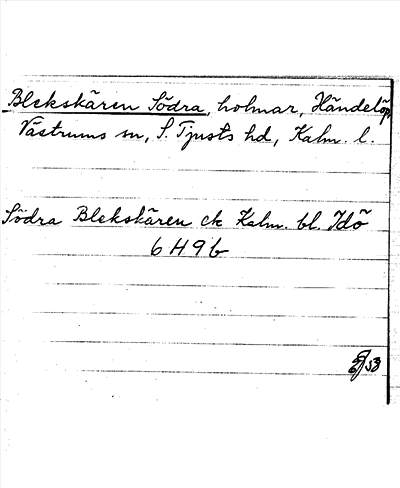 Blekskären Södra, holmar, Händelöp,
Västrums sn, S. Tjusts hd, Kalm. l.
Södra Blekskären ek Kalm. bl. Idö
6 H 9 b
53